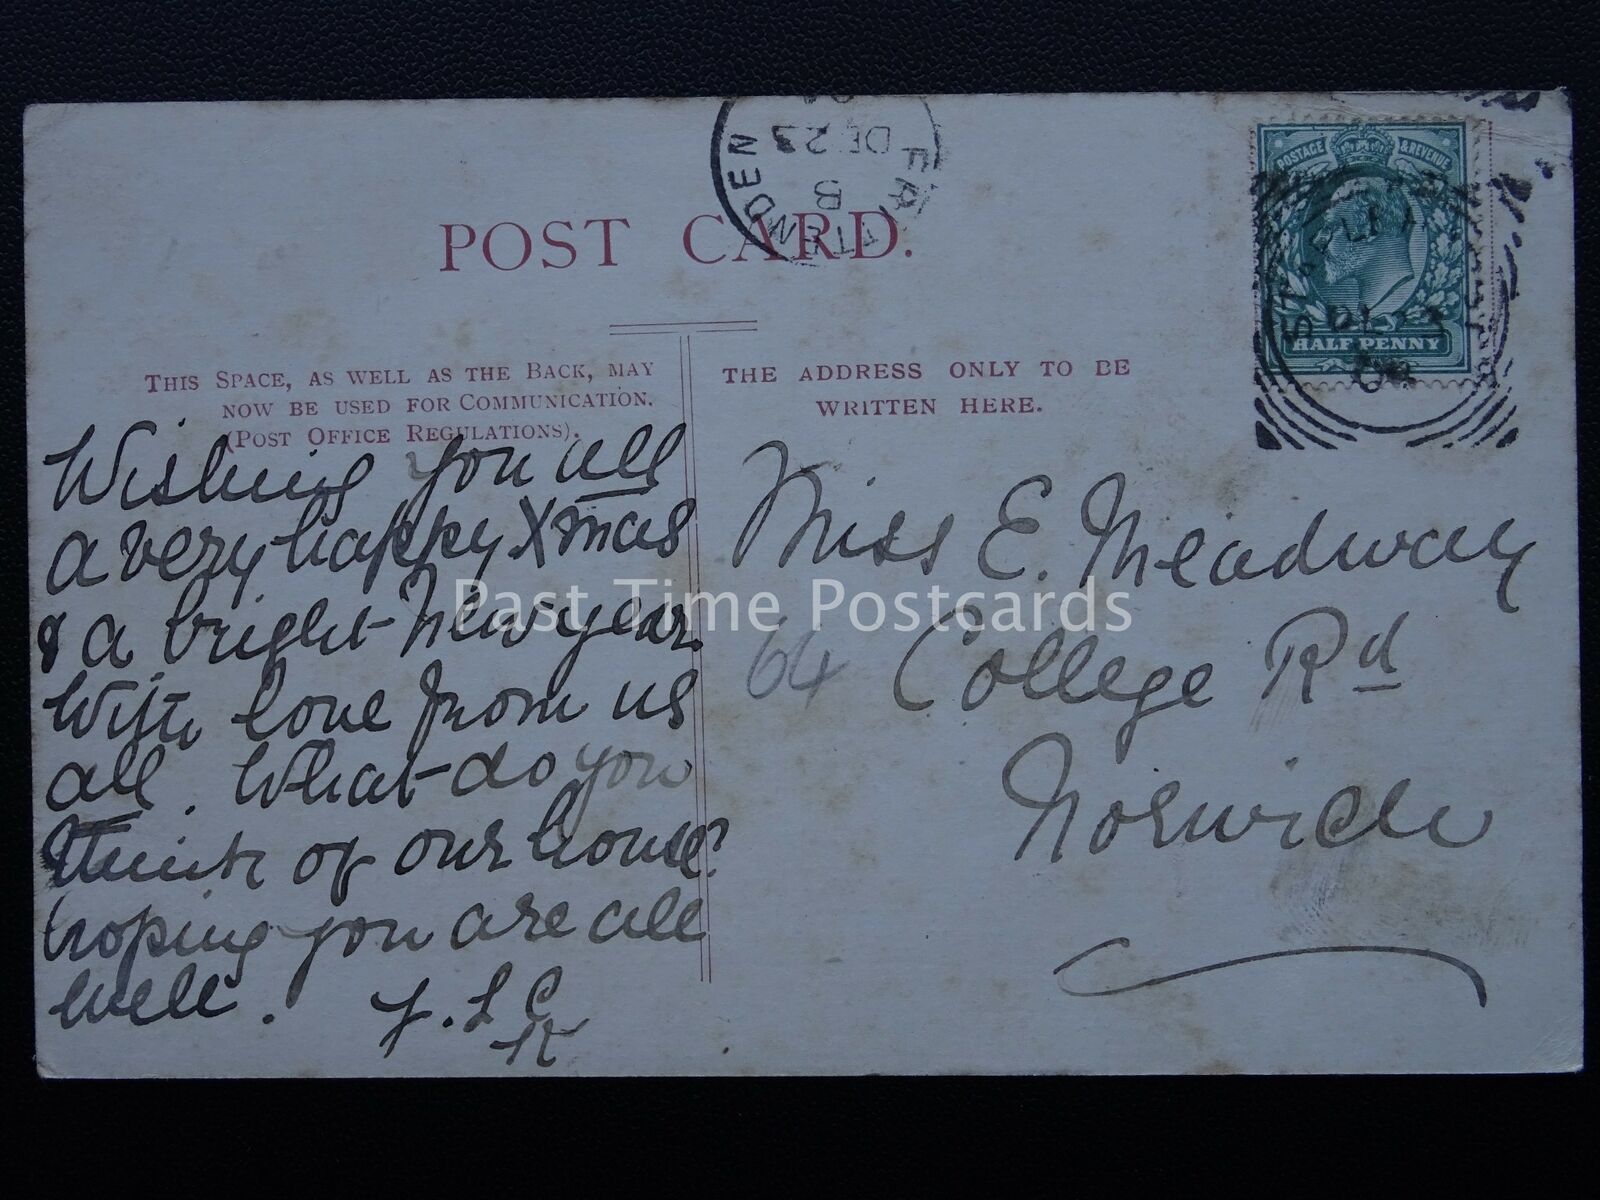 POST CARD.
THIS SPACE, AS WELL AS THE BACK, MAY
NOW BE USED FOR COMMUNICATION.
(POST OFFICE REGULATIONS).
Wishing you all
a very happy Xmas
& a bright New year
With love from us
all. What do you
think of our house?
hoping you are all
well.
THE ADDRESS ONLY TO BE
WRITTEN HERE.
Miss E. Meadway
64 College Rd
Norwich
DE 23
B
POSTAGE & REVENUE
HALF PENNY
Past Time Postcards